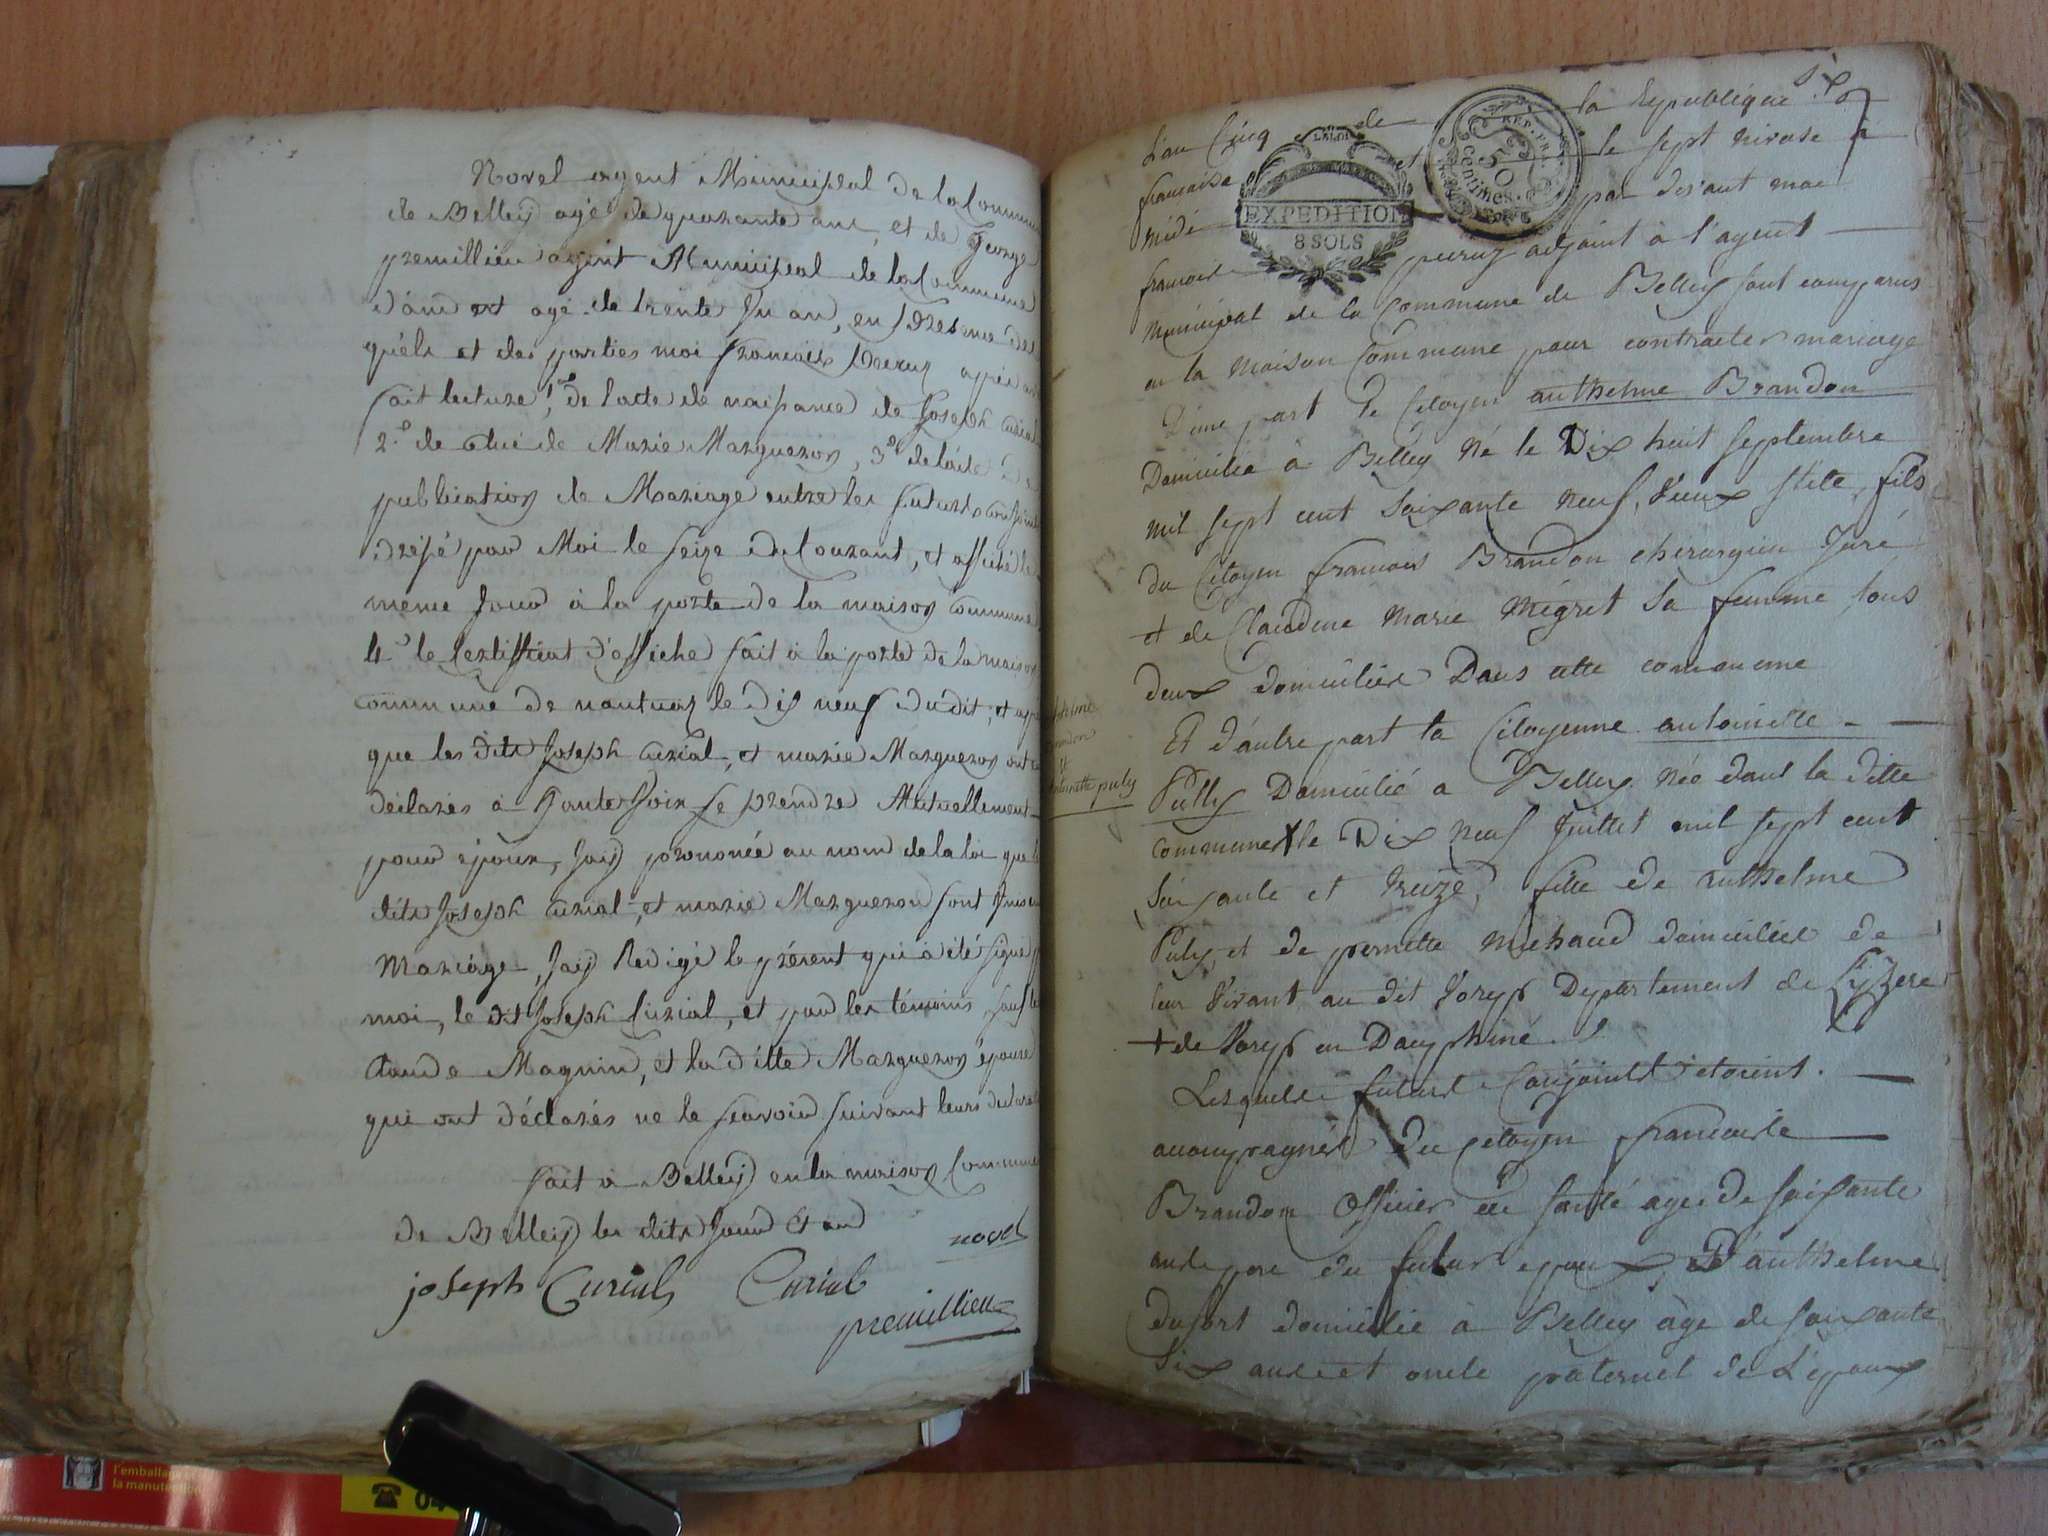 Novel agent Municipal de la Commune
de Belley agé de quarante ans, et de George
premillieu agent Municipal de la Commune
et agé de trente un an, en presence des
quels et des parties moi francois peruz apprès avoir
fait lecture, 1º de l'acte de naissance de Joseph Curial
2º de celui de Marie Margueron, 3º de l'acte de
publication de Mariage entre les futurs conjoints
dressé par Moi le seize du Courant, et affiché le
même Jour à la porte de la maison commune
4º le Certifficat d'affiche fait à la porte de la maison
commune de nantuaz le dix neuf du dit, et apprès
que les dits Joseph curial, et marie Margueron ont
déclarés à haute voix se prendre Mutuellement
pour époux, Jaij prononcée au nom de la loi que les
dits Joseph curial, et marie Marguerond sont unis en
Mariage, Jaij Redigé le présent qui à été signé p
moi, le dit Joseph Curial, et par les témoins sauf le
Claude Magnin, et la ditte Margueron épouse
qui ont déclarés ne le scavoir suivant leurs declara
fait à Belleij en la maison Commune
de Belleij les dits Jour et an
novel
joseph Curial Curial
premillieu
L'an Cinq de la Republique
francaise et le sept nivose à
midi par devant moi
francois peruz adjoint à l'agent
municipal de la Commune de Belley sont comparus
en la Maison Commune pour contracter mariage
D'une part le Citoyen anthelme Brandon
Domicilié à Belley Né le Dix huit Septembre
mil sept cent soixante neuf, vieux stile, fils
du Citoyen francois Brandon chirurgien Juré
et de Claudine Marie Mégret sa femme tous
deux domiciliés Dans cette commune
Et d'autre part la Citoyenne antoinette
Pully Domicilié a Belley Née dans la ditte
commune + le Dix Neuf Juillet mil sept cent
soixante et treize, fille de anthelme
Puly, et de pernette michaud domiciliés de
leur vivant au dit Vorep Departement de Lyzere
+ de Vorep en Dauphiné
Lesquels futurs Conjoints etoient
accompagnés du Citoyen francois
Brandon Officier de santé agé de soixante
ans pere du futur epoux, D'anthelme
Dufort domicilié à Belley âgé de soixante
six ans et oncle paternel de L'epoux
puly
EXPEDITION
8 SOLS
LA LOI
REP. FRA.
50
centimes
l'emballage
la manutention
04